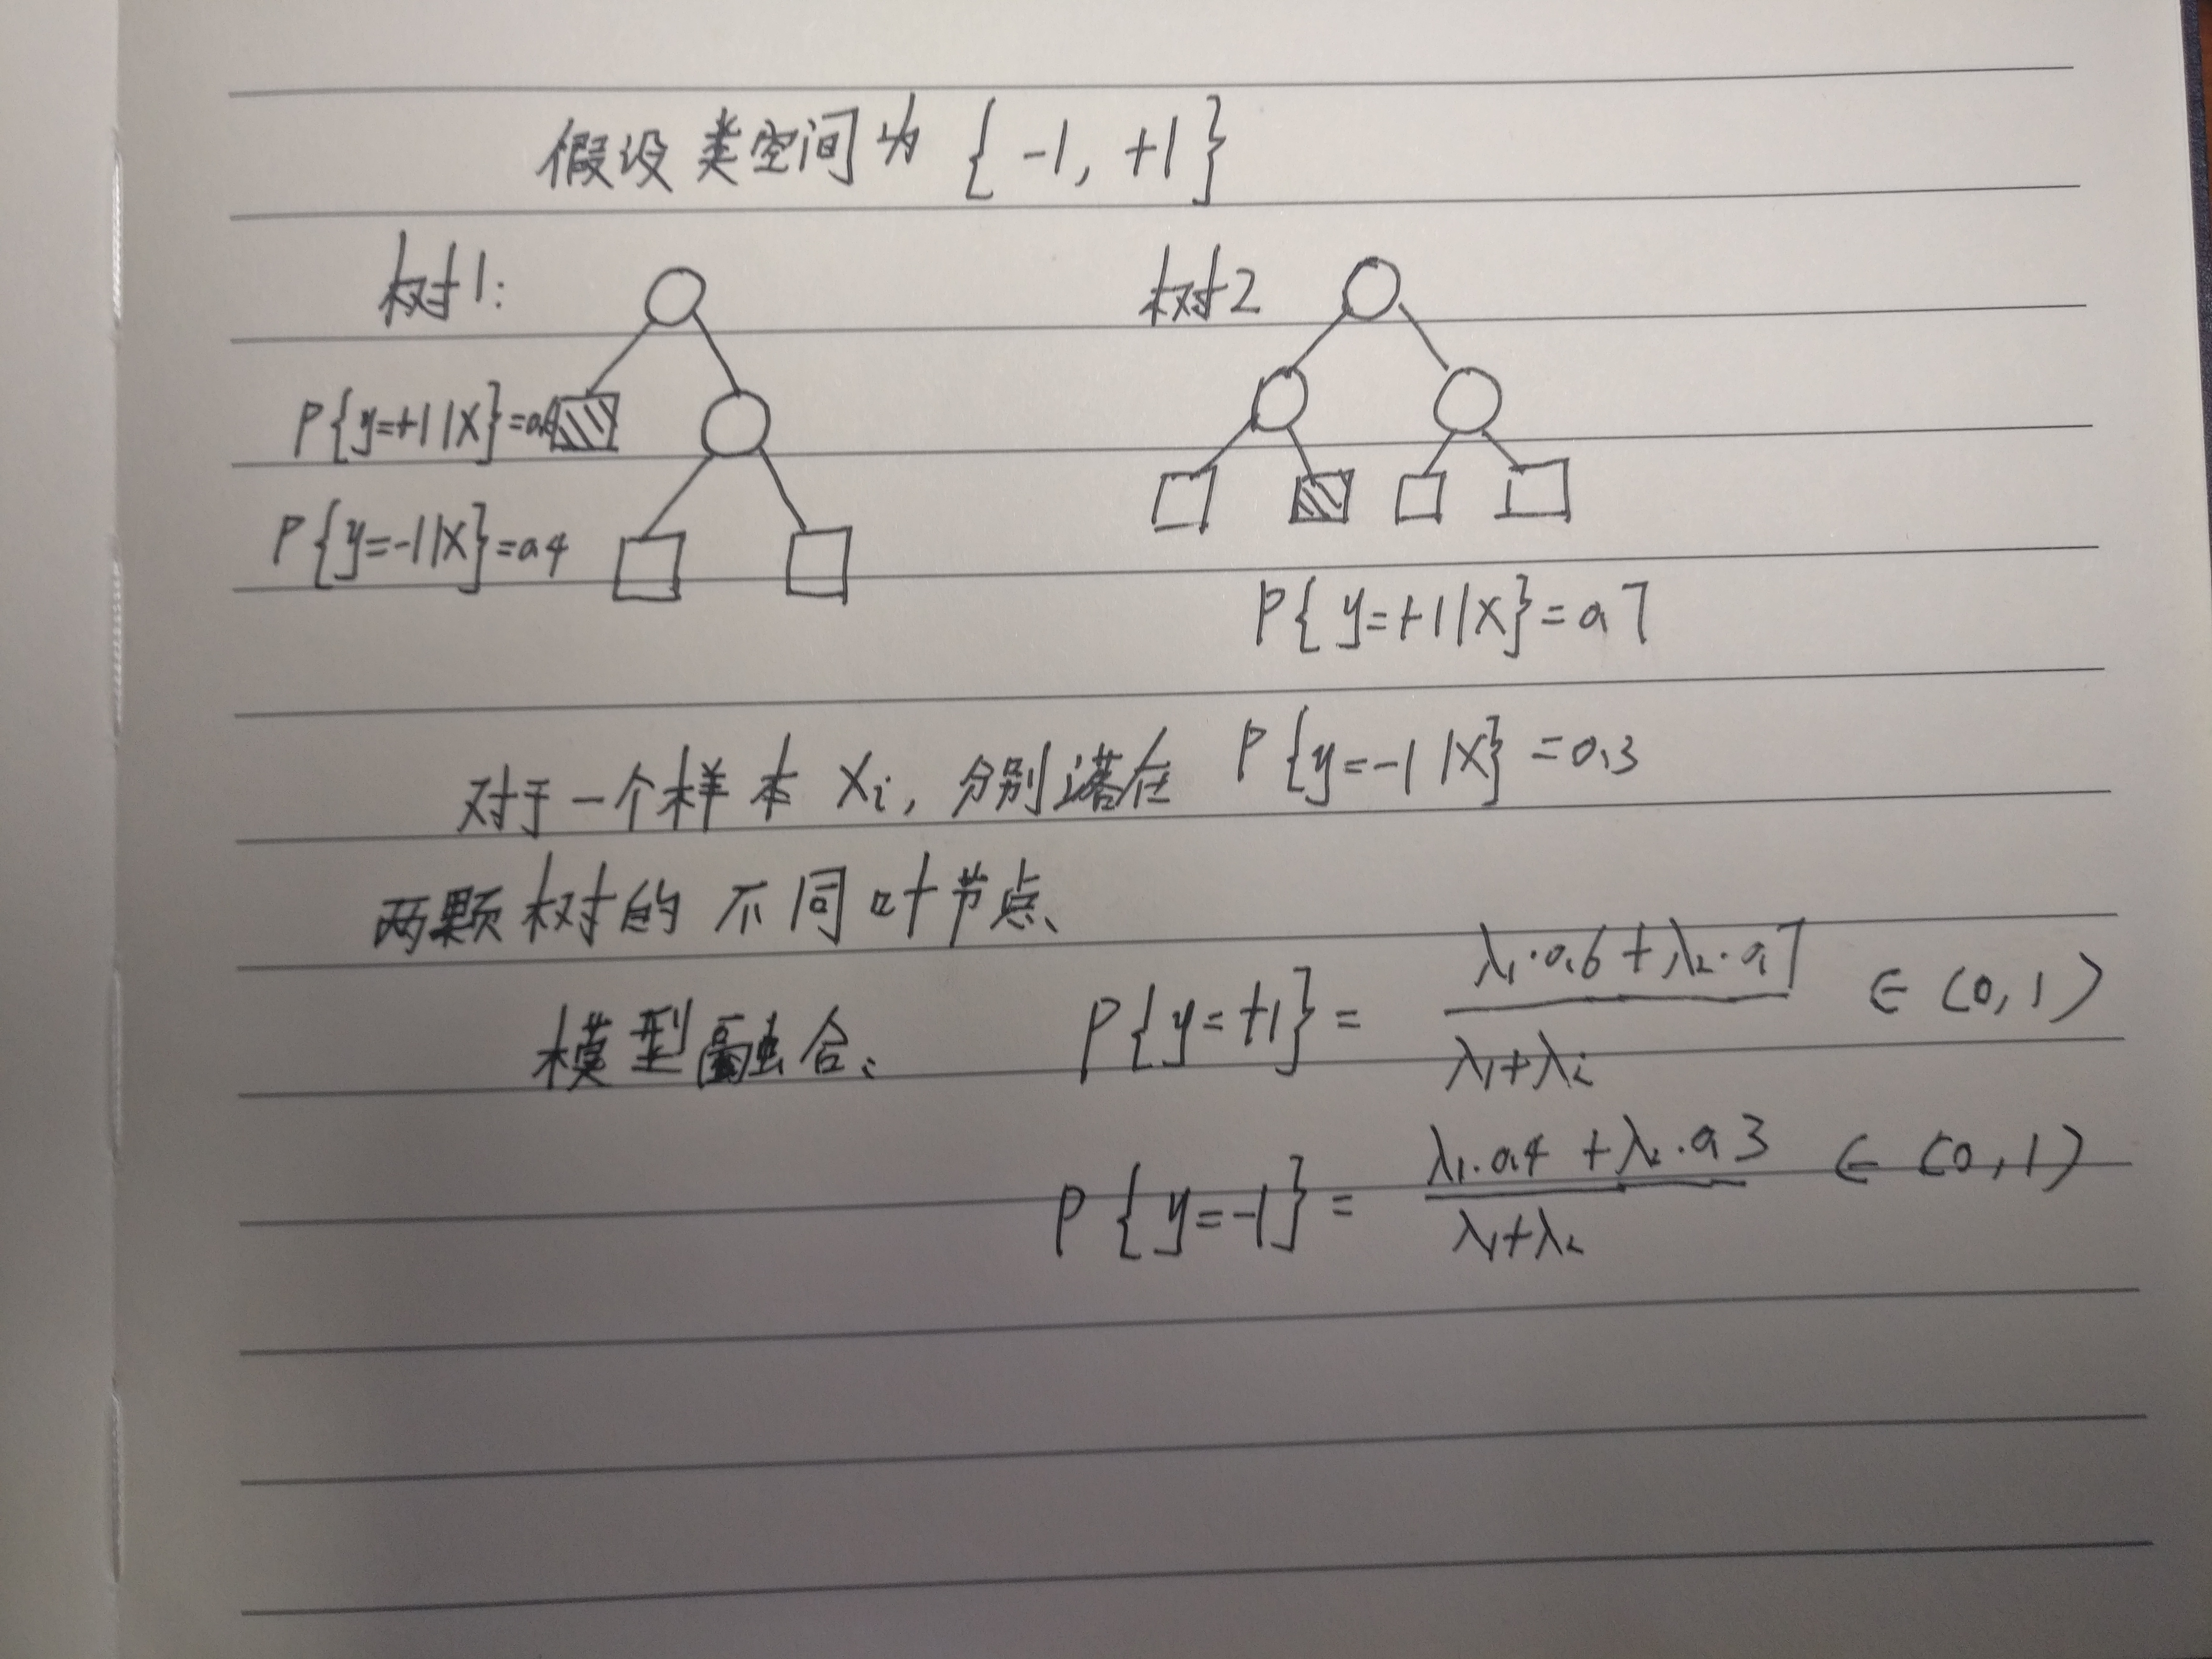 假设类空间为 {-1, +1}
树1:
P{y=+1|X}=0.6
P{y=-1|X}=0.4
树2
P{y=+1|X}=0.7
P{y=-1|X}=0.3
对于一个样本 Xi, 分别落在
两颗树的不同叶节点、
模型融合:
P{y=+1}= (λ1·0.6+λ2·0.7)/(λ1+λ2) ∈ (0,1)
P{y=-1}= (λ1·0.4+λ2·0.3)/(λ1+λ2) ∈ (0,1)